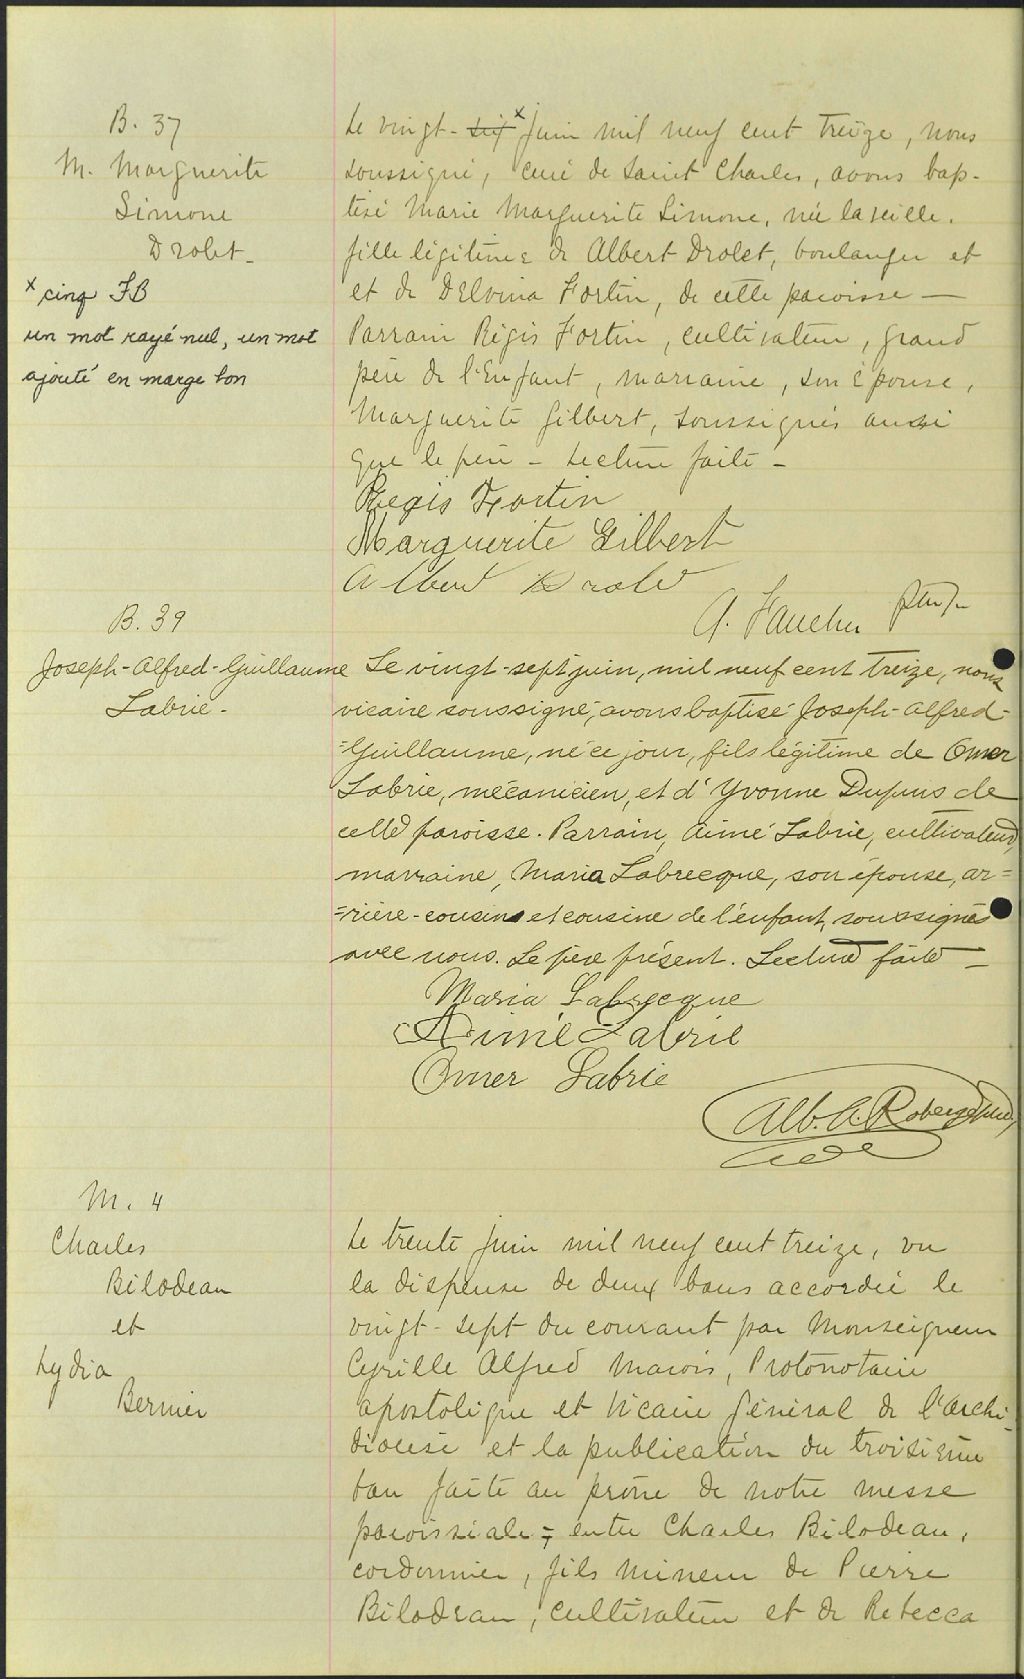 B. 37
M. Marguerite
Simone
Drolet_
x cinq FB
un mot rayé nul, un mot
ajouté en marge bon
Le vingt-six x juin mil neuf cent treize, nous
soussigné, curé de Saint Charles, avons bap-
tisé Marie Marguerite Simone, née la veille,
fille légitime de Albert Drolet, boulanger et
et de Delvina Fortin, de cette paroisse —
Parrain Régis Fortin, cultivateur, grand
père de l'Enfant, marraine, son épouse,
Marguerite Gilbert, soussignés aussi
que le père - Lecture faite -
Régis Fortin
Marguerite Gilbert
Albert Drolet
A. Faucher ptre
B. 39
Joseph-Alfred-Guillaume
Labrie-
Le vingt-sept juin, mil neuf cent treize, nous
vicaire soussigné, avons baptisé Joseph-Alfred-
-Guillaume, né ce jour, fils légitime de Omer
Labrie, mécanicien, et d'Yvonne Dupuis de
cette paroisse. Parrain, Aimé Labrie, cultivateur,
marraine, Maria Labrecque, son épouse, ar=
=rière-cousins et cousine de l'enfant, soussignés
avec nous. Le père présent. Lecture faite —
Maria Labrecque
Aimé Labrie
Omer Labrie
Alb. A. Roberge ptre
M. 4
Charles
Bilodeau
et
Lydia
Bernier
Le trente juin mil neuf cent treize, vu
la dispense de deux bans accordée le
vingt-sept du courant par Monseigneur
Cyrille Alfred Marois, Protonotaire
apostolique et Vicaire Général de l'Archi-
diocèse et la publication du troisième
ban faite au prône de notre messe
paroissiale = entre Charles Bilodeau,
cordonnier, fils mineur de Pierre
Bilodeau, cultivateur et de Rebecca